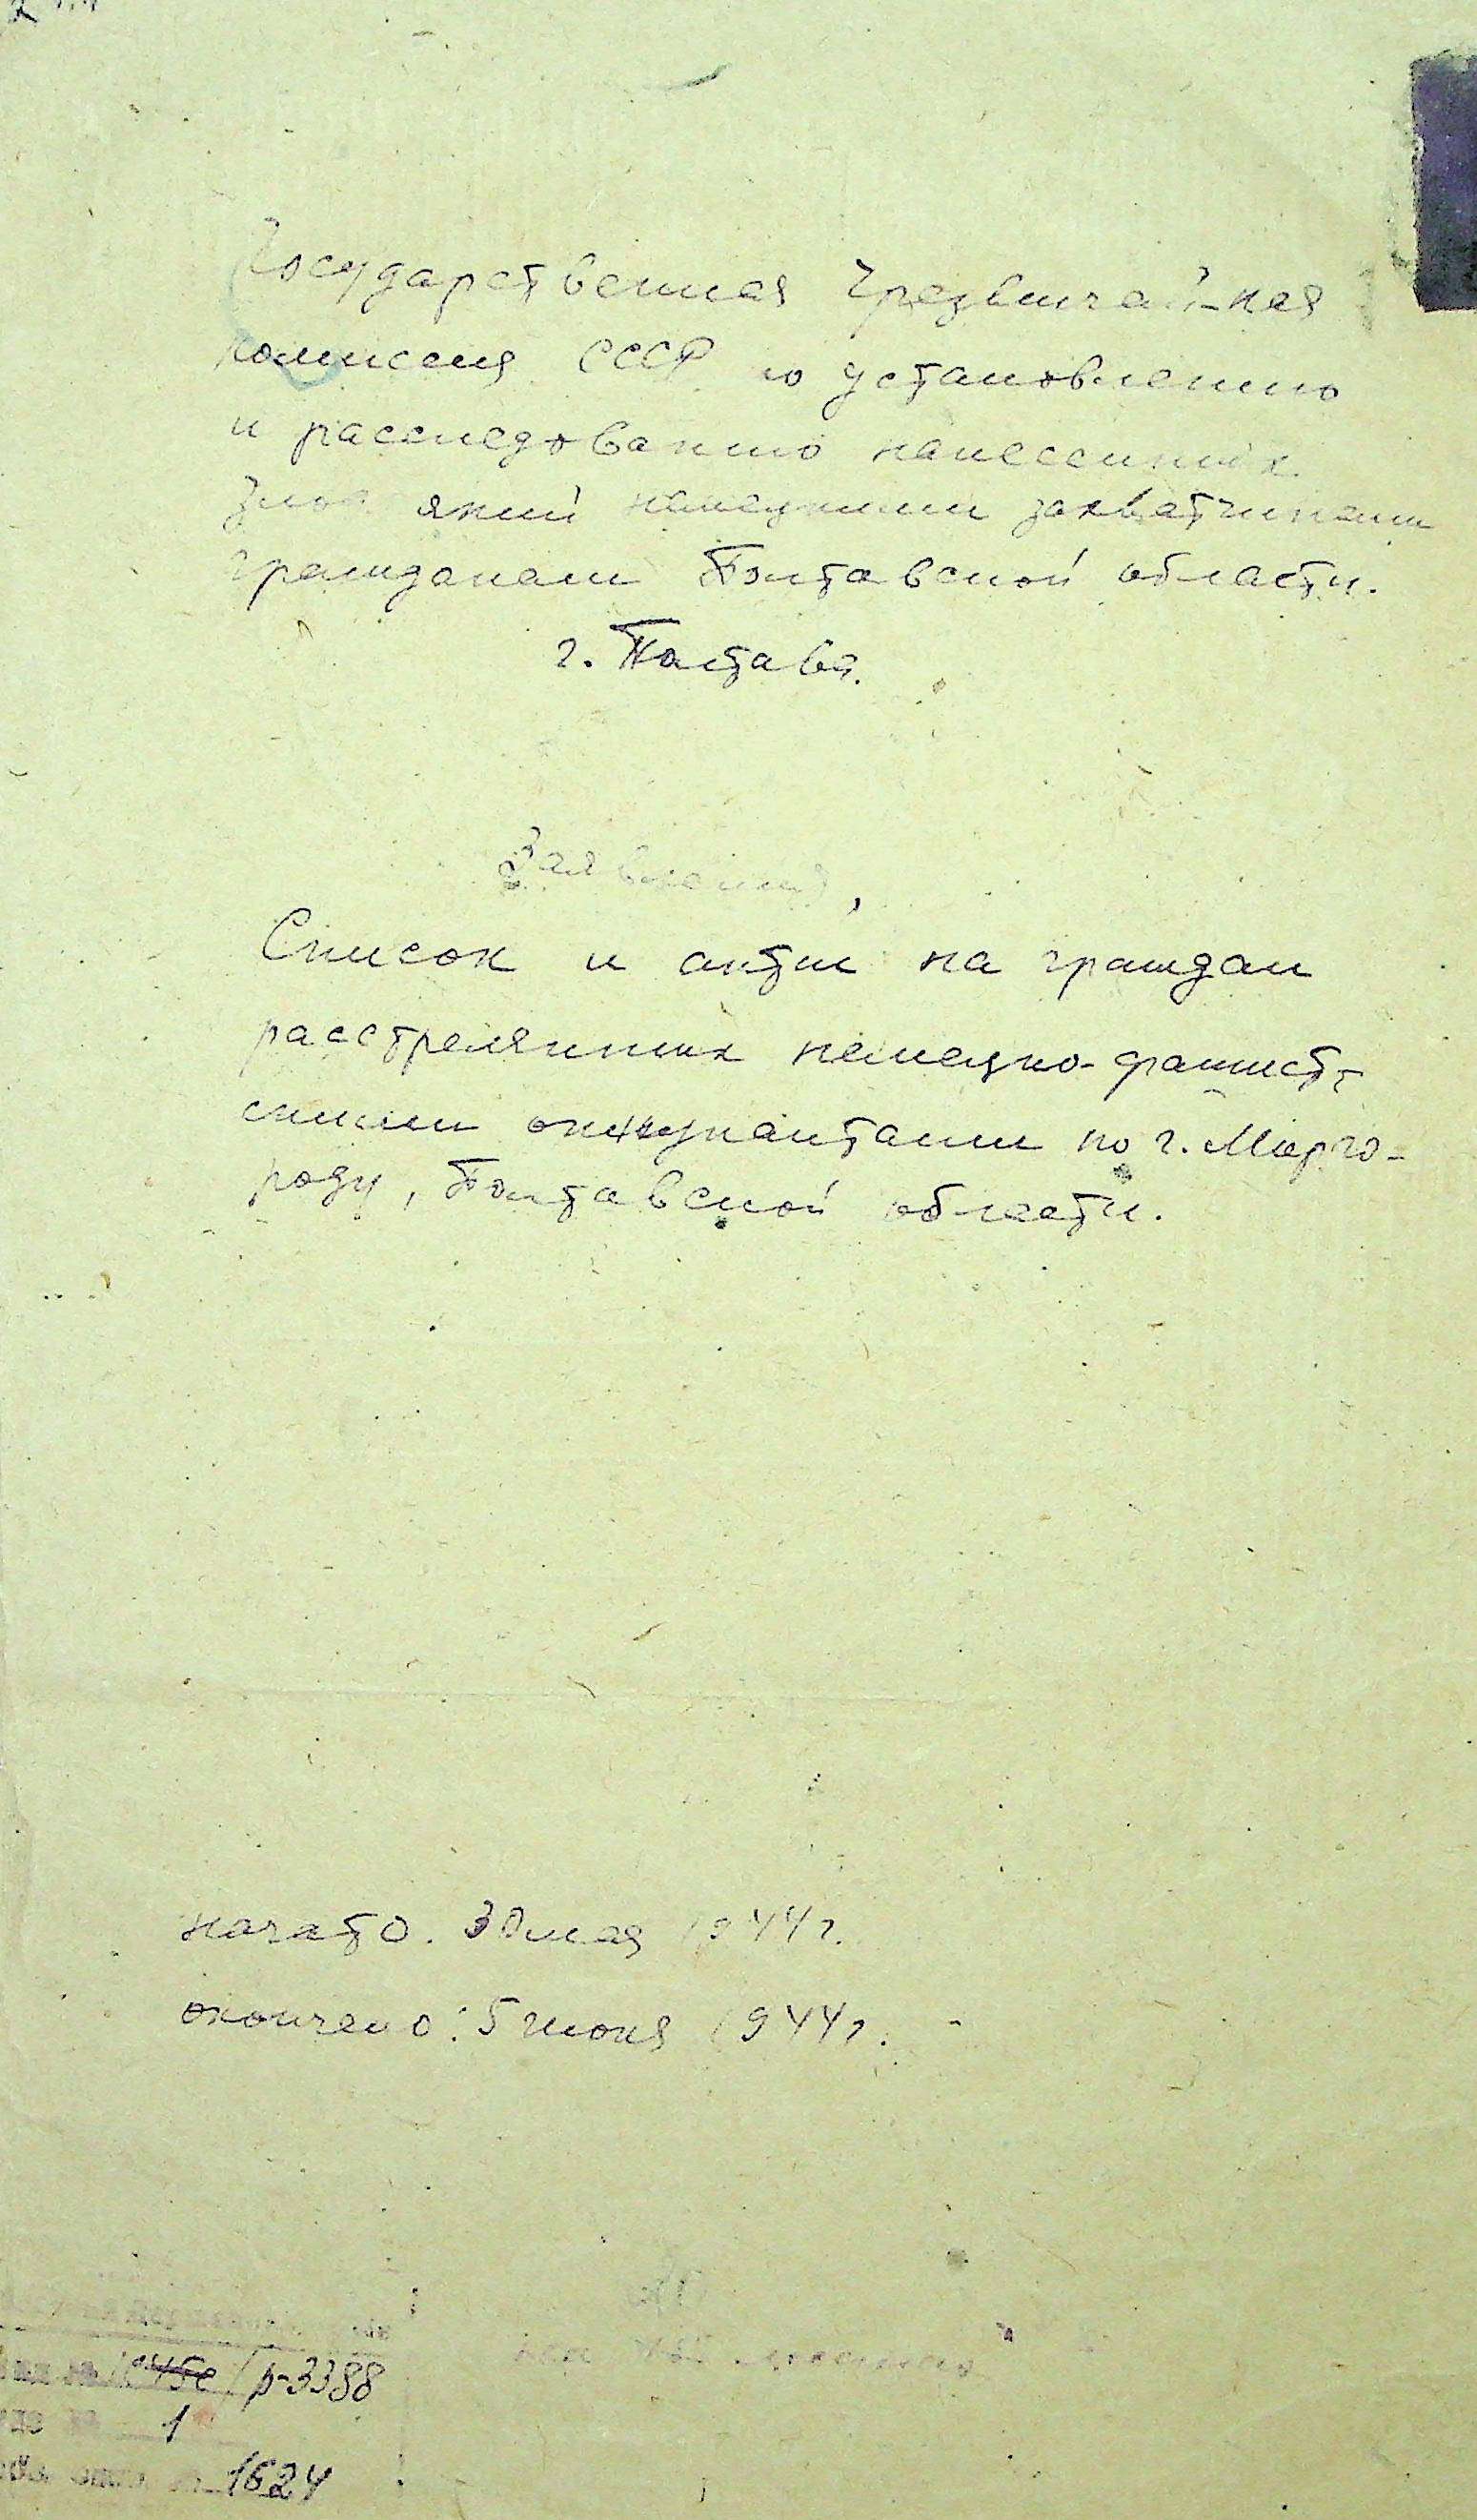 Государственная Чрезвичайная
комиссия СССР по установлению
и расследованию нанесенных
злодеяний немецкими захватчиками
гражданам Полтавской области.
г. Полтава.
Заявления,
Список и акты на граждан
расстрелянных немецко-фашист-
скими оккупантами по г. Мирго-
роду, Полтавской области.
начато. 30 мая 1944 г.
окончено: 5 июня 1944 г.
р-3388
1
1624